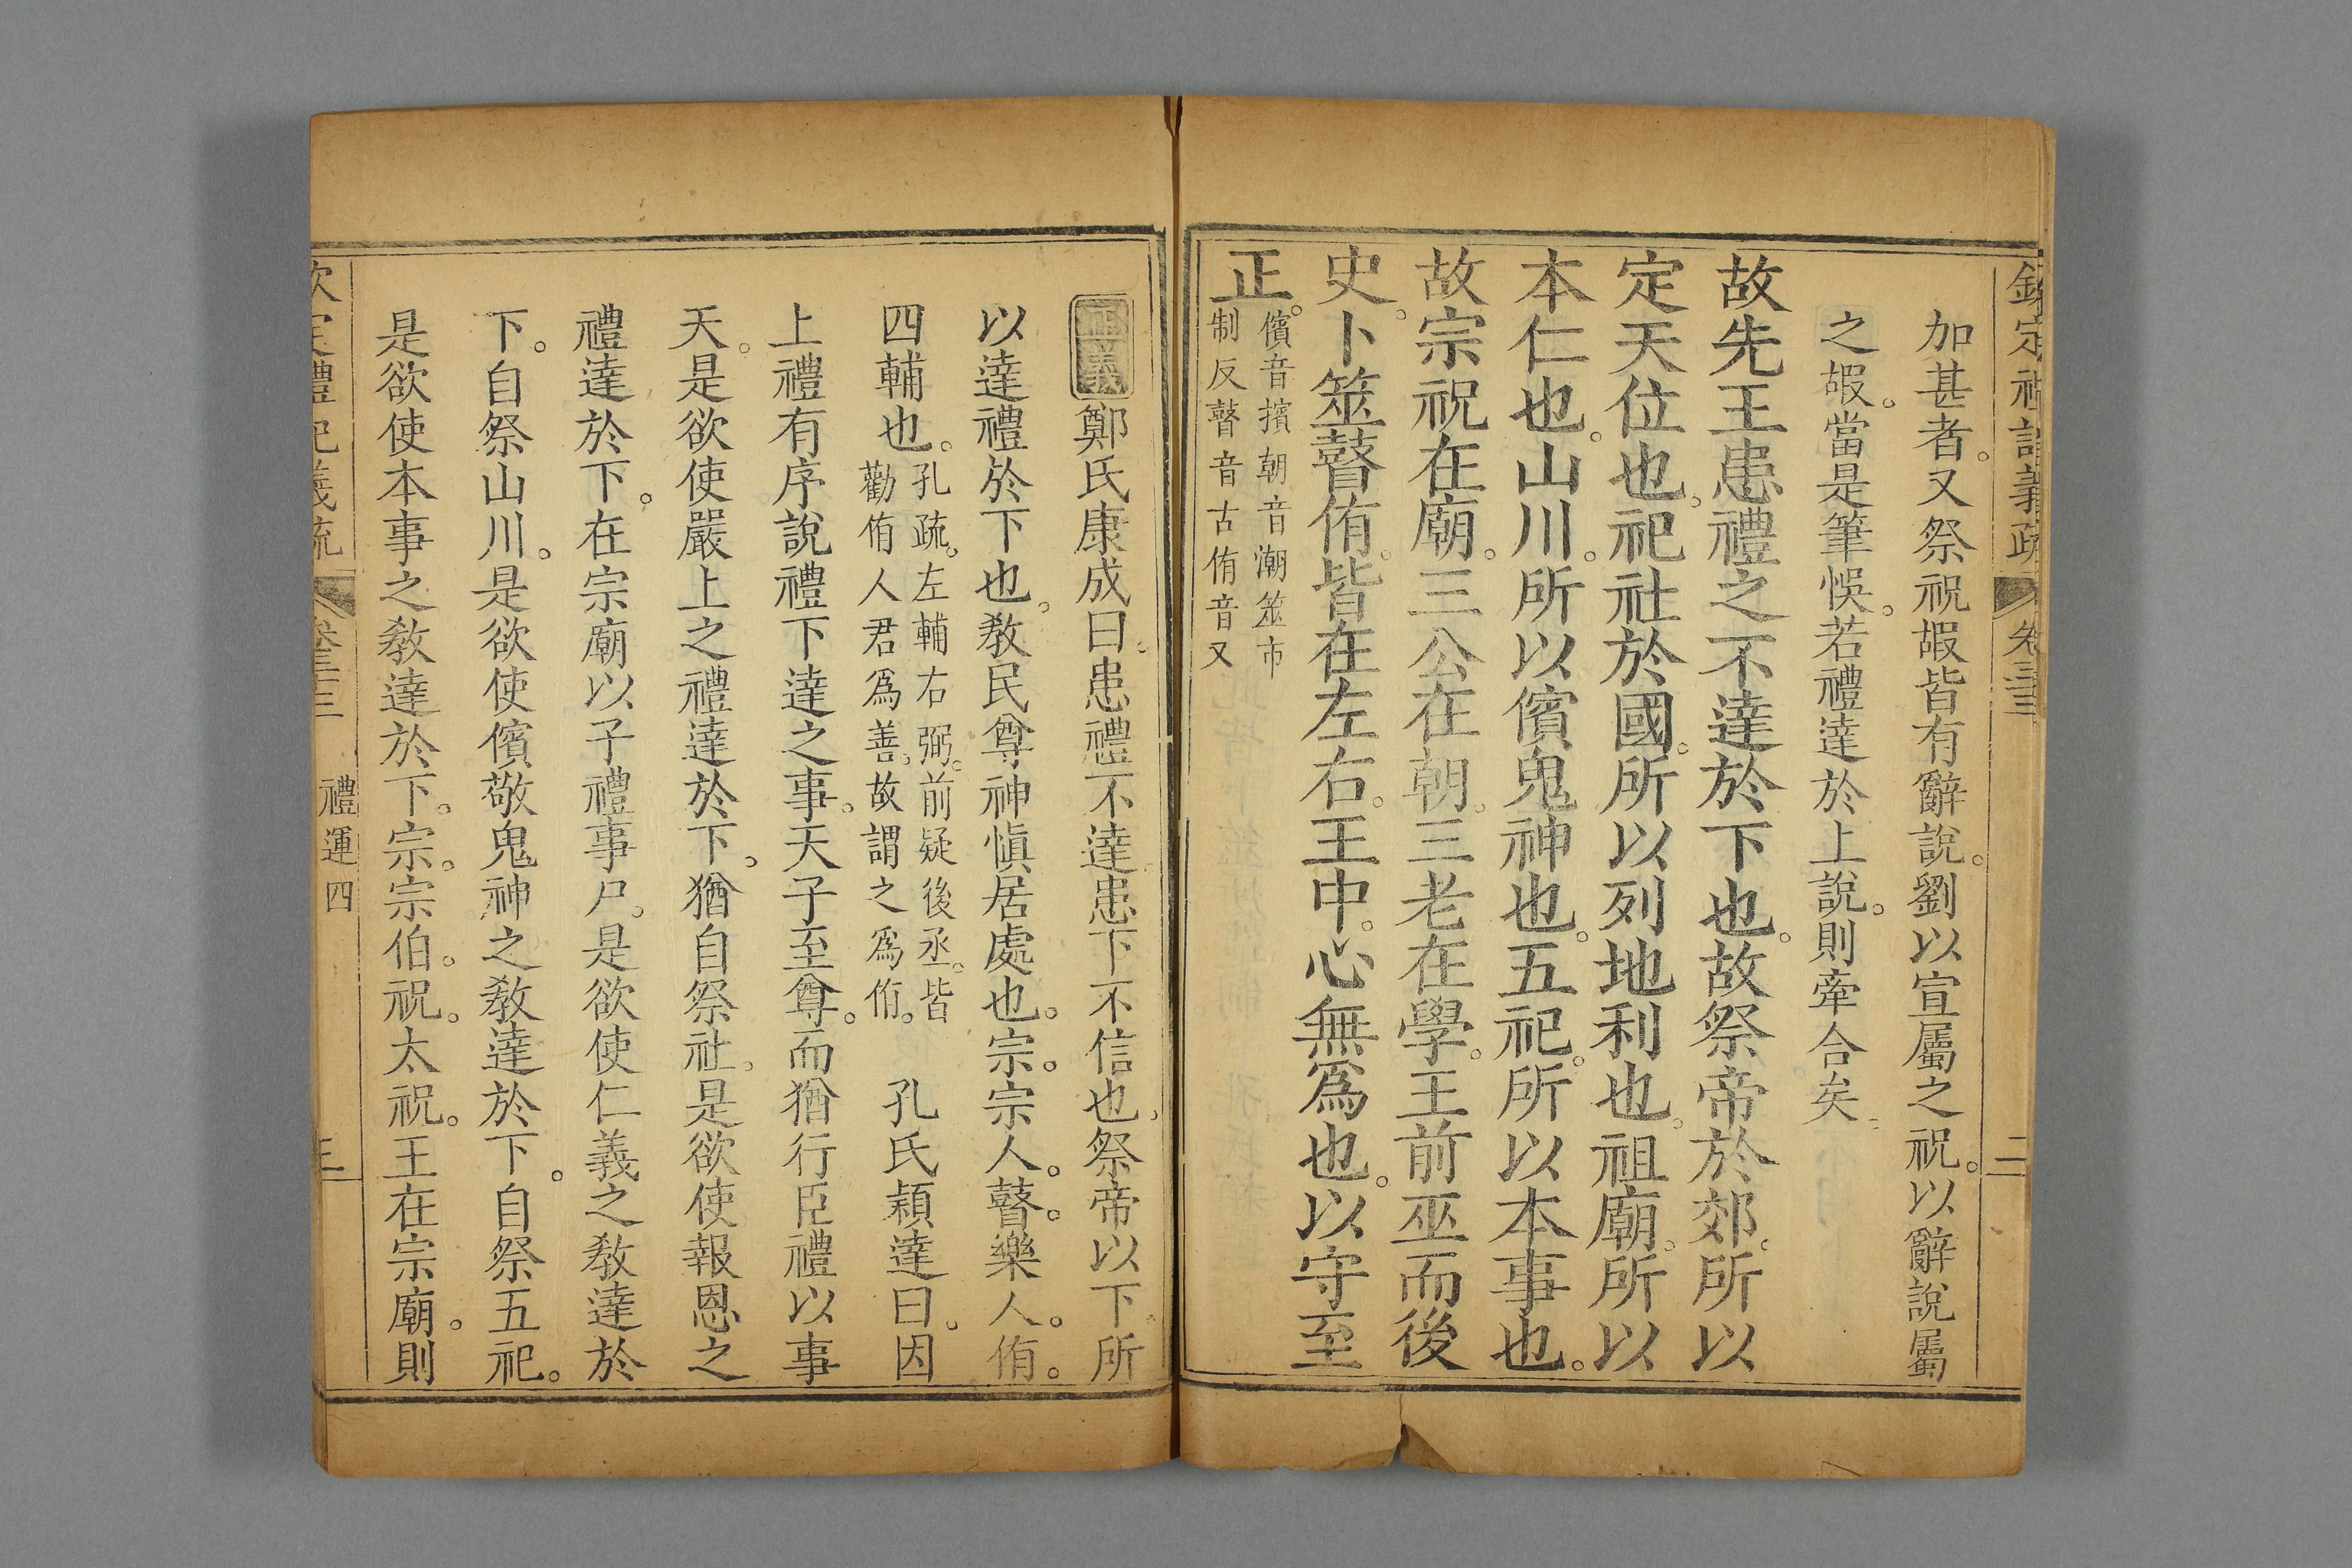 欽定禮記義疏 卷三十三 二
加甚者。又祭祝嘏皆有辭說。劉以宣屬之祝。以辭說屬
之嘏。當是筆悞。若禮達於上說。則牽合矣。
故先王患禮之不達於下也。故祭帝於郊。所以
定天位也。祀社於國。所以列地利也。祖廟。所以
本仁也。山川。所以儐鬼神也。五祀。所以本事也。
故宗祝在廟。三公在朝。三老在學。王前巫而後
史。卜筮瞽侑。皆在左右。王中。心無爲也。以守至
正。
儐音擯朝音潮筮市
制反瞽音古侑音又
正義 鄭氏康成曰。患禮不達患下不信也。祭帝以下。所
以達禮於下也。敎民尊神愼居處也。宗。宗人。瞽。樂人。侑。
四輔也。
孔疏。左輔右弼。前疑後丞。皆
勸侑人君爲善。故謂之爲侑。
孔氏穎達曰。因
上禮有序說禮下達之事。天子至尊。而猶行臣禮以事
天。是欲使嚴上之禮達於下。猶自祭社。是欲使報恩之
禮達於下。在宗廟以子禮事尸。是欲使仁義之敎達於
下。自祭山川。是欲使儐敬鬼神之敎達於下。自祭五祀。
是欲使本事之敎達於下。宗。宗伯。祝。太祝。王在宗廟。則
欽定禮記義疏 卷三十三 禮運四